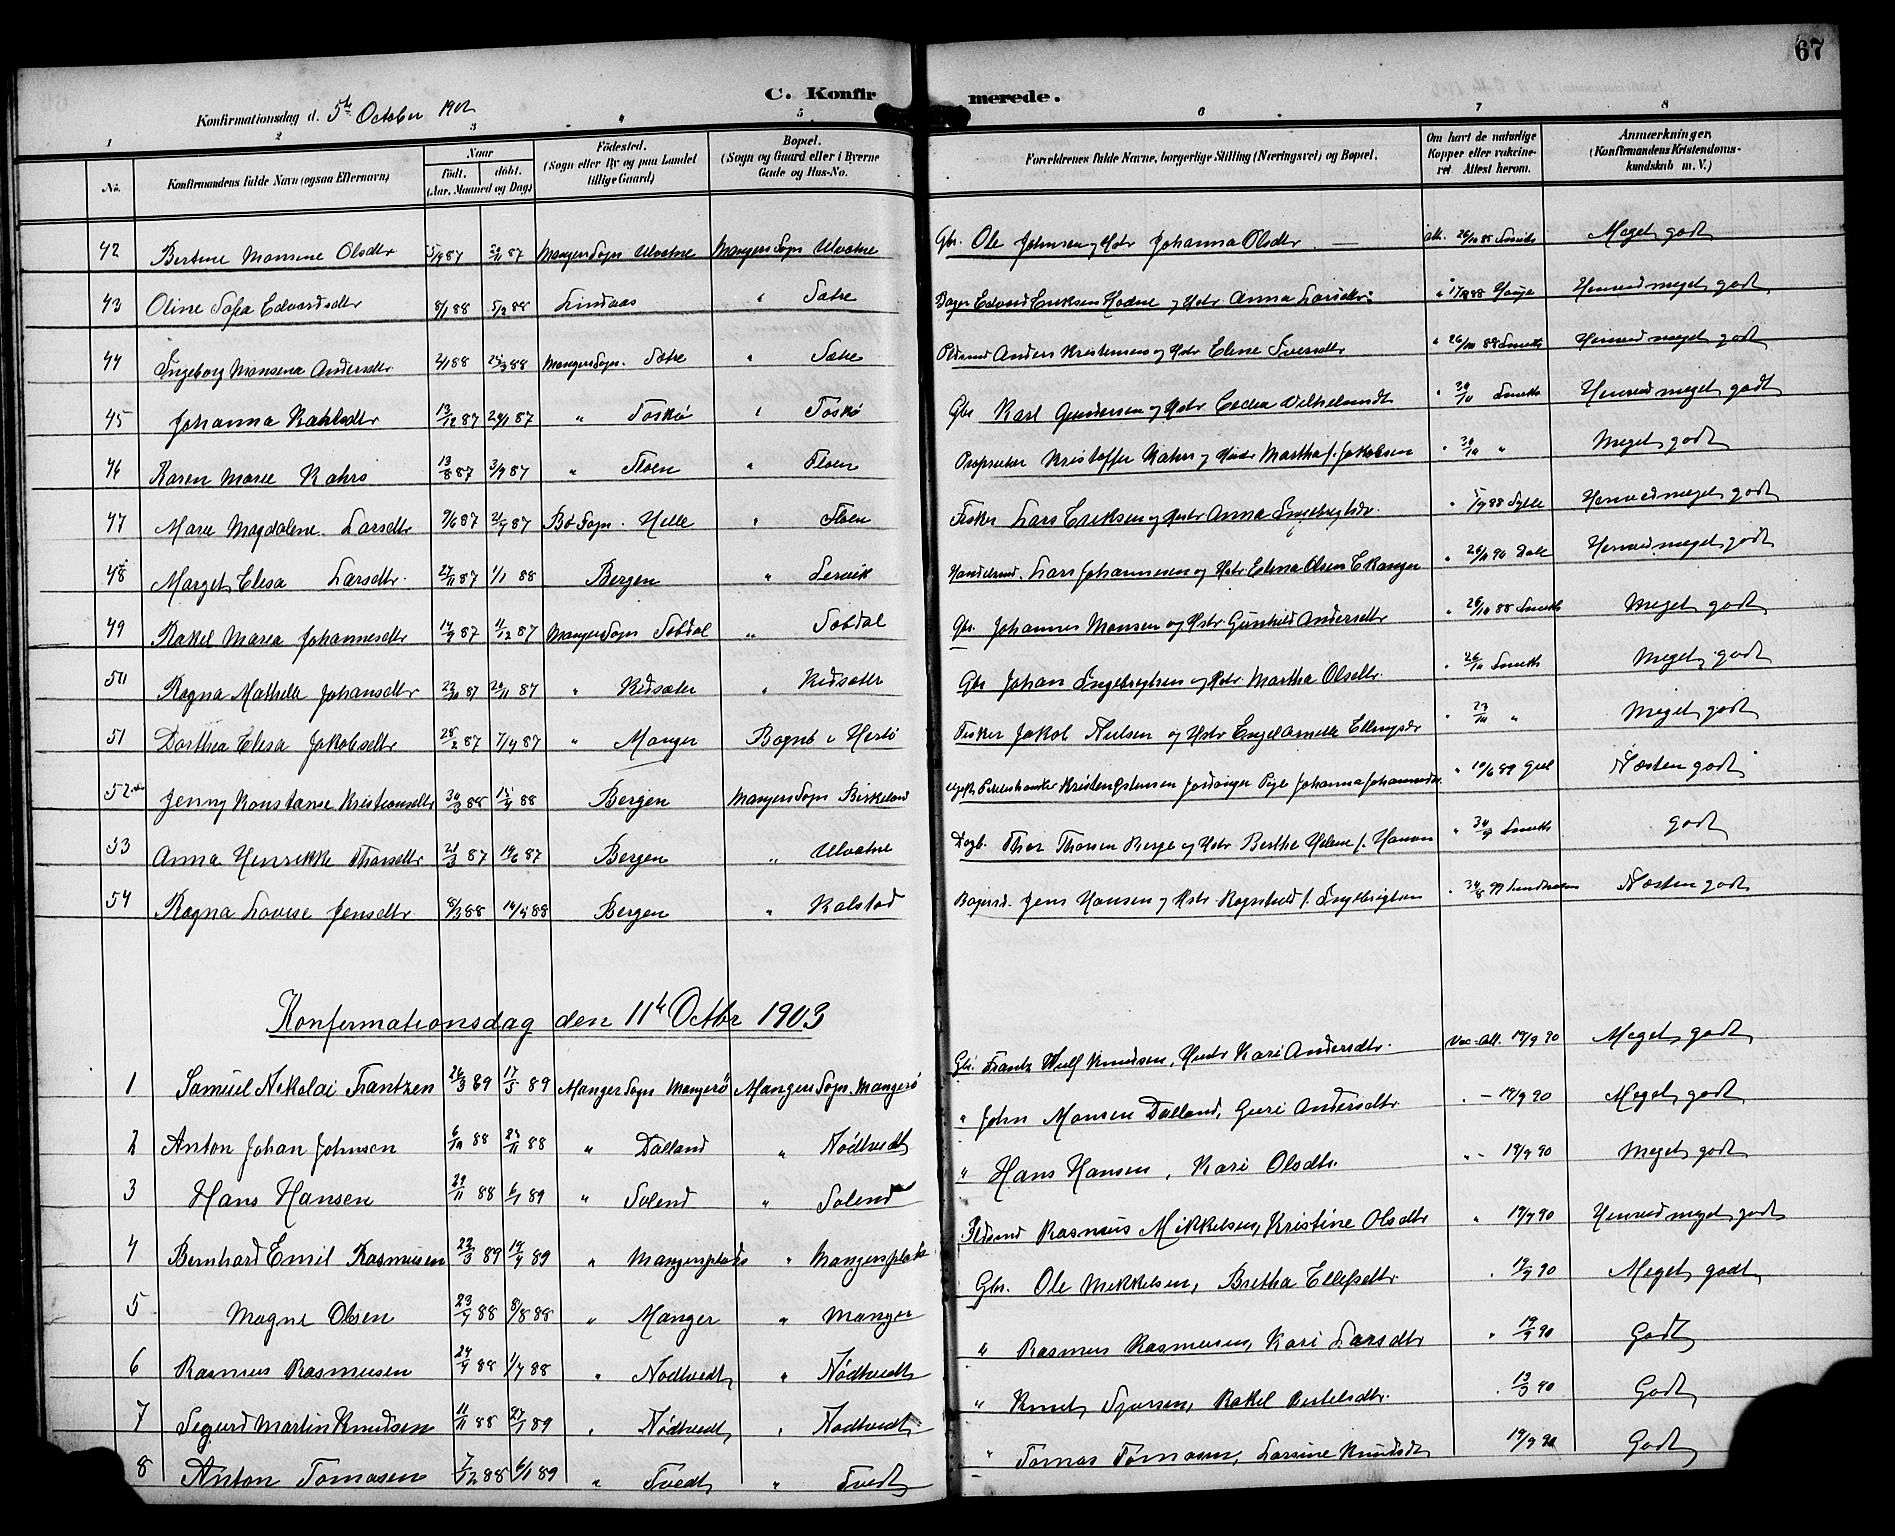 67
C. Konfirmerede.
Konfirmationsdag d. 5te October 1902
1 2 3 " 5 6 7 8
No. Konfirmandens fulde Navn (ogsaa Efternavn) Naar født. døbt. (Aar, Maaned og Dag) Fødested. (Sogn eller By og paa Landet tillige Gaard) Bopæl. (Sogn og Gaard eller i Byerne Gade og Hus-No. Forældrenes fulde Navne, borgerlige Stilling (Næringsvei) og Bopæl. Om havt de naturlige Kopper eller vaksineret. Attest herom. Anmærkninger. (Konfirmandens Kristendomskundskab m. V.)
42 Bertine Monsine Olsdtr 5/9 87 87 Manger Sogn Ulvatne Manger Sogn Ulvatne Gbr. Ole Johnsen og Hstr Johanna Olsdtr. att. 26/10 88 Smith Meget godt
43 Oline Sofia Edvardsdtr 8/1 88 5/2 88 Lindaas " Sætre Edvard Eriksen og Hstr Anna Larsdtr Henved meget godt
44 Ingeborg Monsena Andersdtr 88 88 Manger Sogn. Sætre " Sætre Anders Kristensen og Hstr Eline Henved meget godt
45 Johanna Karlsdtr 13/12 87 87 " Toskø " Toskø Gbr Karl Gundersen og Hstr Henved meget godt
46 Karen Marie Kahrs 13/8 87 3/9 87 " Floen " Floen Proprietær Kristoffer Kahrs og Hustr Martha f. Jakobsen " Meget godt
47 Marie Magdalene Larsdtr 9/6 87 87 Bø Sogn. Helle " Floen Fisker Lars Eriksen og Hstr Anna Henved meget godt
48 Marget Elisa Larsdtr. 27/11 87 1/1 88 Bergen " Lervik Handelsmd. Lars Johannesen og Hstr Elena Olsen Henved meget godt
49 Rakel Maria Johannesdtr 14/9 87 11/12 87 Manger Sogn Søbdal " Søbdal Gbr. Johannes Monsen og Hstr Gunhild Andersdtr " 26/10 88 Smith Meget godt
50 Ragna Mathilde Johansdtr 87 87 " Kidsæter " Kidsæter Gbr Johan Ingebrigtsen og Hstr Martha Olsdtr. " 26/10 Smith Meget godt
51 Dorthea Elisa Jakobsdtr 28/2 87 7/4 87 " Manger Bognø i Herlø Fisker Jakob Nielsen og Hstr Engel Ellingsdr " 23/10 " Meget godt
52 Jenny Konstanse Kristiansdtr 30/3 88 88 Bergen Manger Sogn Birkeland Pige Johanna Johannesdtr Næsten godt
53 Anna Henrikke Thorsdtr 21/3 87 19/6 87 Bergen " Ulvatne Dagb. Thor Thorsen Berge og Hstr Berthe Helene f. Hansen Smith godt
54 Ragna Lovise Jensdtr 8/3 88 88 Bergen " Kalstad Jens Hansen og Hstr Ragnhild f. Ingebrigtsen Næsten godt
Konfirmationsdag den 11te Octbr 1903
1 Samuel Nikolai Frantzen 26/3 89 17/5 89 Manger Sogn Mangerø Manger Sogn. Mangerø Gbr. Frantz Wulf Knudsen, Hustr Kari Andersdtr. Vac. att. 19/9 90 Meget godt
2 Anton Johan Johnsen 6/10 88 25/11 88 " Dalland " Nødtvedt " John Monsen Dalland, Guri Andersdtr " - 19/9 90 Meget godt
3 Hans Hansen 29/11 88 6/1 89 " Solend " Solend " Hans Hansen, Kari Olsdtr. " - 19/9 90 Meget godt
4 Bernhard Emil Rasmusen 22/3 89 19/4 89 " Mangerplads " Mangerplads Rasmus Mikkelsen, Kristine Olsdtr " 19/9 90 Henved meget godt
5 Magne Olsen 23/4 88 8/8 88 " Manger " Manger Gbr. Ole Mikkelsen, Bretha Ellefsdtr. " 19/9 90 Meget godt
6 Rasmus Rasmusen 88 88 " Nødtvedt " Nødtvedt " Rasmus Rasmusen, Kari Larsdtr " 19/9 90 Godt
7 Sigurd Martin Knudsen 11/11 88 27/1 89 " Nødtvedt " Nødtvedt " Knut Sjursen, Rakel Bertelsdtr. " 13/3 90 Godt
8 Anton Tomasen 7/12 88 6/1 89 " Tvedt " Tvedt " Tomas Tomasen, Larsine Knudsdt 19/9 90 Godt